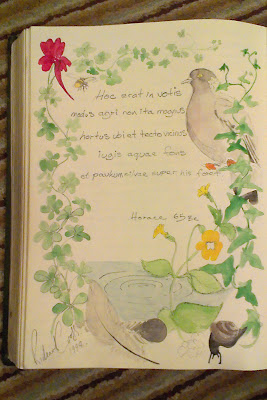 Hoc erat in votis
modus agri non ita magnus
hortus ubi et tecto vicinus
iugis aquae fons
et paulum silvae super his foret
Horace 65 BC
1992.